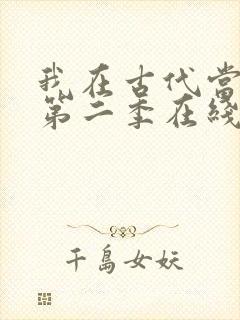 我在古代當
第二季在綫
千島女妖